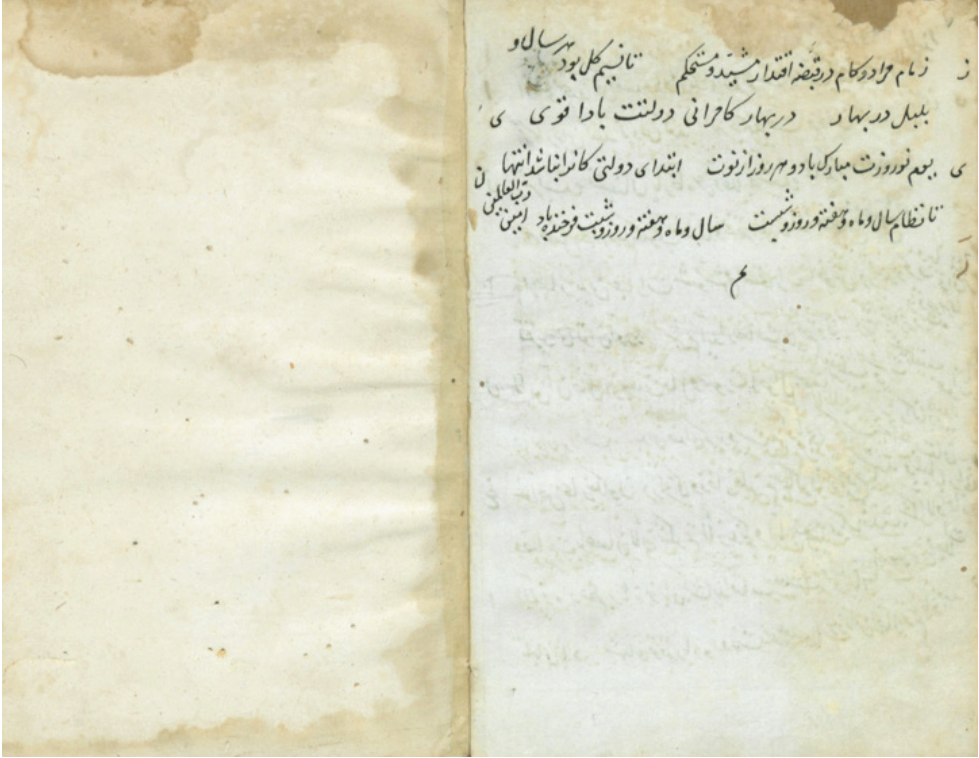 ز زمام مراد و کام در قبضه اقتدار مشید و مستحکم تا نسیم گل بود هر سال و
بلبل در بهار در بهار کامرانی دولتت بادا قوی ی
ی یوم نوروزت مبارک باد و هر روز از نوت ابتدای دولتی کانرا نباشد انتها ن
تا نظام سال و ماه و هفته و روز و شبست سال و ماه و هفته و روز و شبت فرخنده باد امین رب العالمین
م